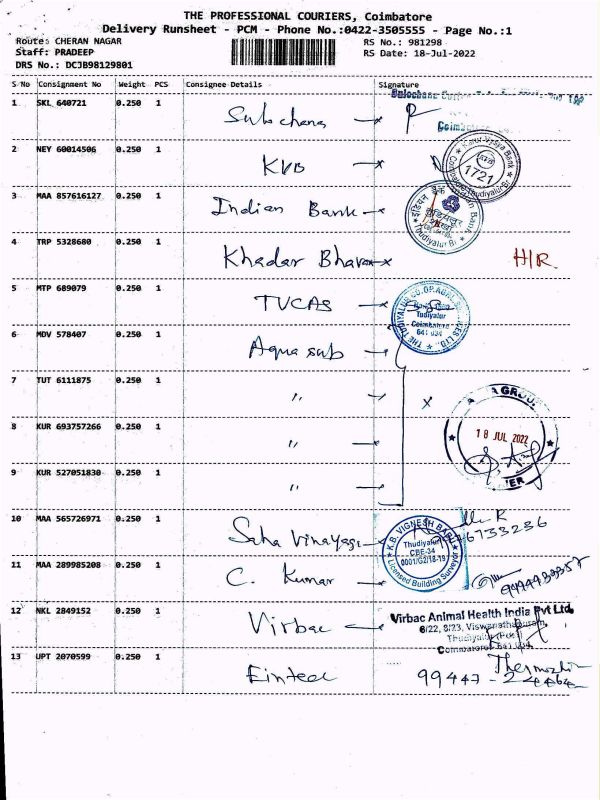 THE PROFESSIONAL COURIERS, Coimbatore
Delivery Runsheet - PCM - Phone No.:0422-3505555 - Page No.:1
Route: CHERAN NAGAR
RS No.: 981298
Staff: PRADEEP
RS Date: 18-Jul-2022
DRS No.: DCJB98129801
S No Consignment No Weight PCS Consignee Details Signature
1 SKL 640721 0.250 1 Sulochana
Coimbatore
2 NEY 60014506 0.250 1 KVB
Karur Vysya Bank
1721
3 MAA 857616127 0.250 1 Indian Bank
Indian Bank
Thudiyalur Br
4 TRP 5328680 0.250 1 Khadar Bhavan H/R
5 MTP 689079 0.250 1 TUCAS
THE TUDIYALUR CO.OP.AGRL.
Tudiyalur
Coimbatore
641 034
6 MDV 578407 0.250 1 Aqua sub
7 TUT 6111875 0.250 1 "
GROUP
18 JUL 2022
8 KUR 693757266 0.250 1 "
9 KUR 527051830 0.250 1 "
10 MAA 565726971 0.250 1 Saha Vinayaga
K.B. VIGNESH BABU
Thudiyalur
CBE-34
0001/G2/18-19
Licensed Building Surveyor
11 MAA 289985208 0.250 1 C. Kumar
12 NKL 2849152 0.250 1 Virbac
Virbac Animal Health India Pvt Ltd.
6/22, 8/23, Viswanathapuram,
Thudiyalur (Post)
Coimbatore 641 034
13 UPT 2070599 0.250 1 Eintec